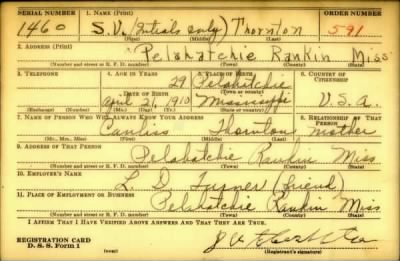 SERIAL NUMBER 1. NAME (Print) ORDER NUMBER
1460 S.V. (Initials only) Thornton 591
(First) (Middle) (Last)
2. ADDRESS (Print)
Pelahatchie Rankin Miss
(Number and street or R. F. D. number) (Town) (County) (State)
3. TELEPHONE 4. AGE IN YEARS 5. PLACE OF BIRTH 6. COUNTRY OF CITIZENSHIP
29 Pelahatchie
DATE OF BIRTH (Town or county)
April 21, 1910 Mississippi U.S.A.
(Exchange) (Number) (Mo.) (Day) (Yr.) (State or country)
7. NAME OF PERSON WHO WILL ALWAYS KNOW YOUR ADDRESS 8. RELATIONSHIP OF THAT PERSON
Thornton mother
(Mr., Mrs., Miss) (First) (Middle) (Last)
9. ADDRESS OF THAT PERSON
Pelahatchie Rankin Miss
(Number and street or R. F. D. number) (Town) (County) (State)
10. EMPLOYER'S NAME
L. D. Turner (friend)
11. PLACE OF EMPLOYMENT OR BUSINESS
Pelahatchie Rankin Miss
(Number and street or R. F. D. number) (Town) (County) (State)
I AFFIRM THAT I HAVE VERIFIED ABOVE ANSWERS AND THAT THEY ARE TRUE.
REGISTRATION CARD
D. S. S. Form 1 (over) (Registrant's signature)